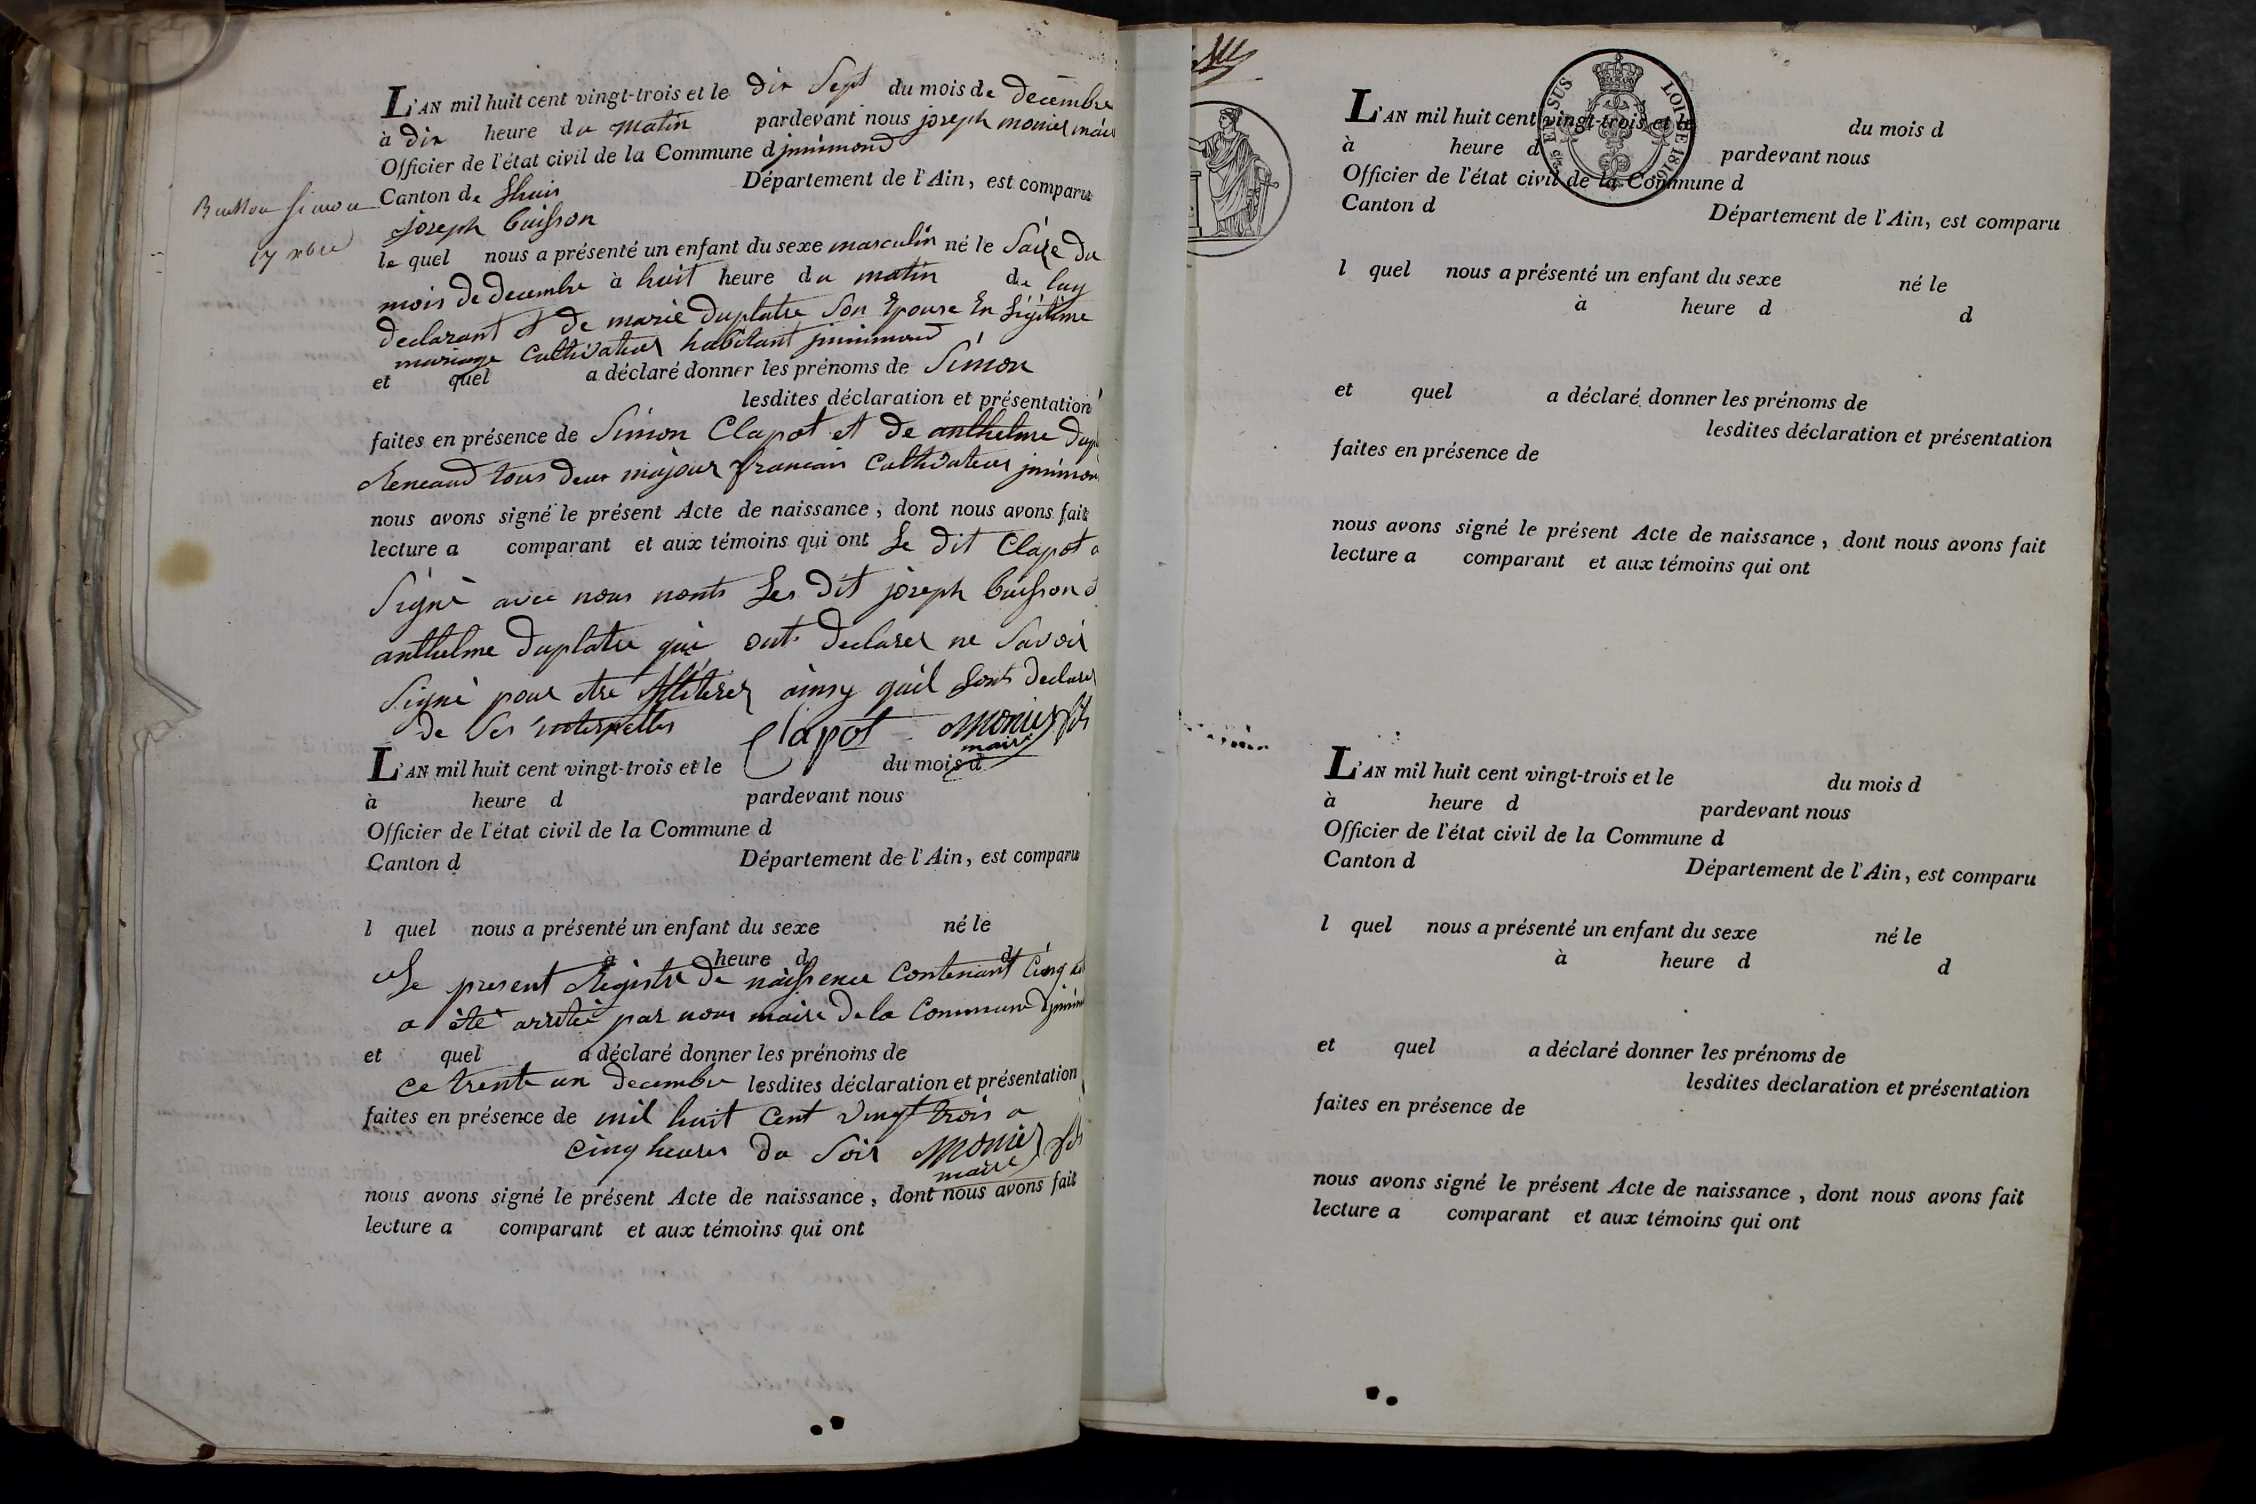 L'AN mil huit cent vingt-trois et le dix Sept du mois de decembre
à dix heure du matin pardevant nous joseph monier maire
Officier de l'état civil de la Commune d jnnimond
Canton de Lhuis Département de l'Ain, est comparu
joseph buisson
Buisson Simon
17 xbre
le quel nous a présenté un enfant du sexe masculin né le Saize du
mois de decembre à huit heure du matin de luy
declarant et de marie duplatre Son Epouse En Légitime
mariage Cultivateur habitant jnnimond
et quel a déclaré donner les prénoms de Simon
lesdites déclaration et présentation
faites en présence de Simon Clapot et de anthelme dupl
Reneaud tous deux majour francais Cultivateur jnnimon
nous avons signé le présent Acte de naissance, dont nous avons fait
lecture a comparant et aux témoins qui ont Le dit Clapot a
Signé avec nous nonts Les dit joseph buisson et
anthelme duplatre qui onts declarer ne Savoir
Signé pour etre illiterer ainsy quil Sonts declarer
de Ses interpelles Clapot monier fils
maire
L'AN mil huit cent vingt-trois et le du mois d
à heure d pardevant nous
Officier de l'état civil de la Commune d
Canton d Département de l'Ain, est comparu
l quel nous a présenté un enfant du sexe né le
à heure d d
Le present Registre de naissence Contenant Cinq
a été arrêtée par nous maire de la Commune d jnnim
et quel a déclaré donner les prénoms de
ce trente un decembre lesdites déclaration et présentation
faites en présence de mil huit Cent vingt trois a
cinq heures du Soir monier fils
maire
nous avons signé le présent Acte de naissance, dont nous avons fait
lecture a comparant et aux témoins qui ont
EN SUS
LOI DE 1816
L'AN mil huit cent vingt-trois et le du mois d
à heure d pardevant nous
Officier de l'état civil de la Commune d
Canton d Département de l'Ain, est comparu
l quel nous a présenté un enfant du sexe né le
à heure d d
et quel a déclaré donner les prénoms de
lesdites déclaration et présentation
faites en présence de
nous avons signé le présent Acte de naissance, dont nous avons fait
lecture a comparant et aux témoins qui ont
L'AN mil huit cent vingt-trois et le du mois d
à heure d pardevant nous
Officier de l'état civil de la Commune d
Canton d Département de l'Ain, est comparu
l quel nous a présenté un enfant du sexe né le
à heure d d
et quel a déclaré donner les prénoms de
lesdites déclaration et présentation
faites en présence de
nous avons signé le présent Acte de naissance, dont nous avons fait
lecture a comparant et aux témoins qui ont